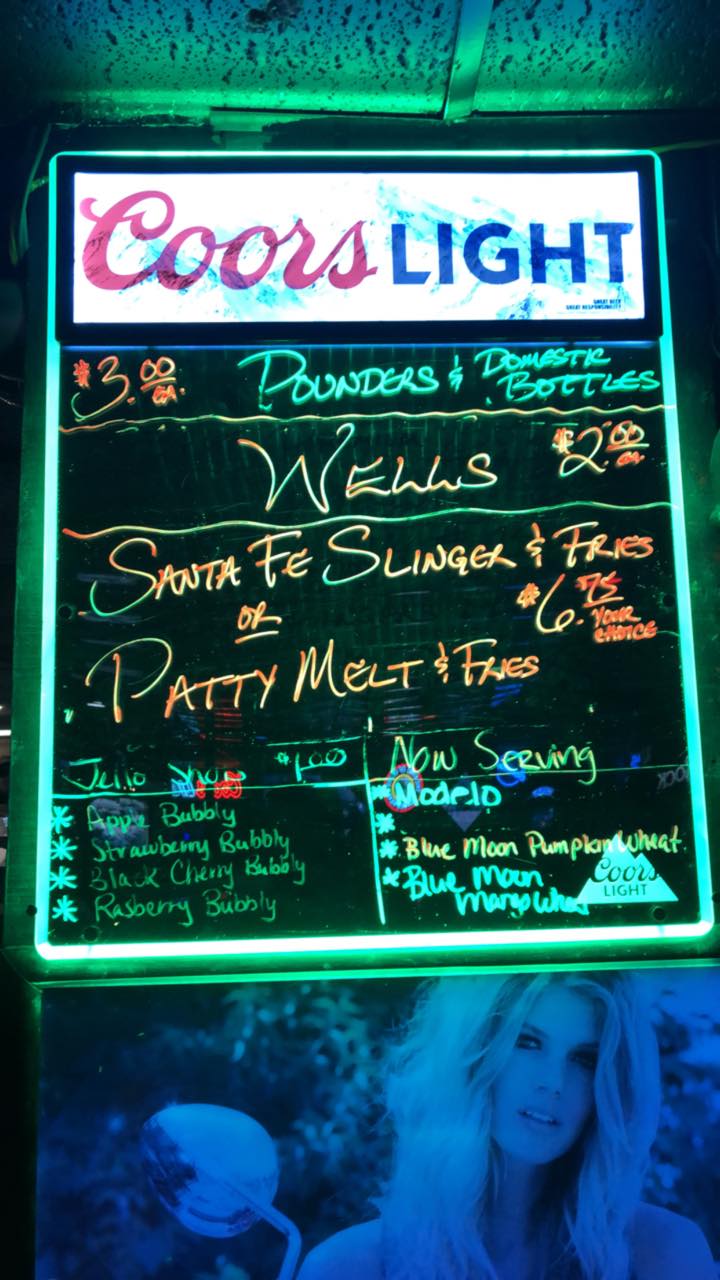 Coors LIGHT
GREAT BEER
GREAT RESPONSIBILITY
$3.00 EA. POUNDERS & DOMESTIC BOTTLES
WELLS $2.00 EA.
SANTA FE SLINGER & FRIES
OR $6.75 YOUR CHOICE
PATTY MELT & FRIES
Jello Shots $1.00
* Apple Bubbly
* Strawberry Bubbly
* Black Cherry Bubbly
* Rasberry Bubbly
Now Serving
* Modelo
*
* Blue Moon Pumpkin Wheat
* Blue Moon
Mango Wheat
Coors
LIGHT